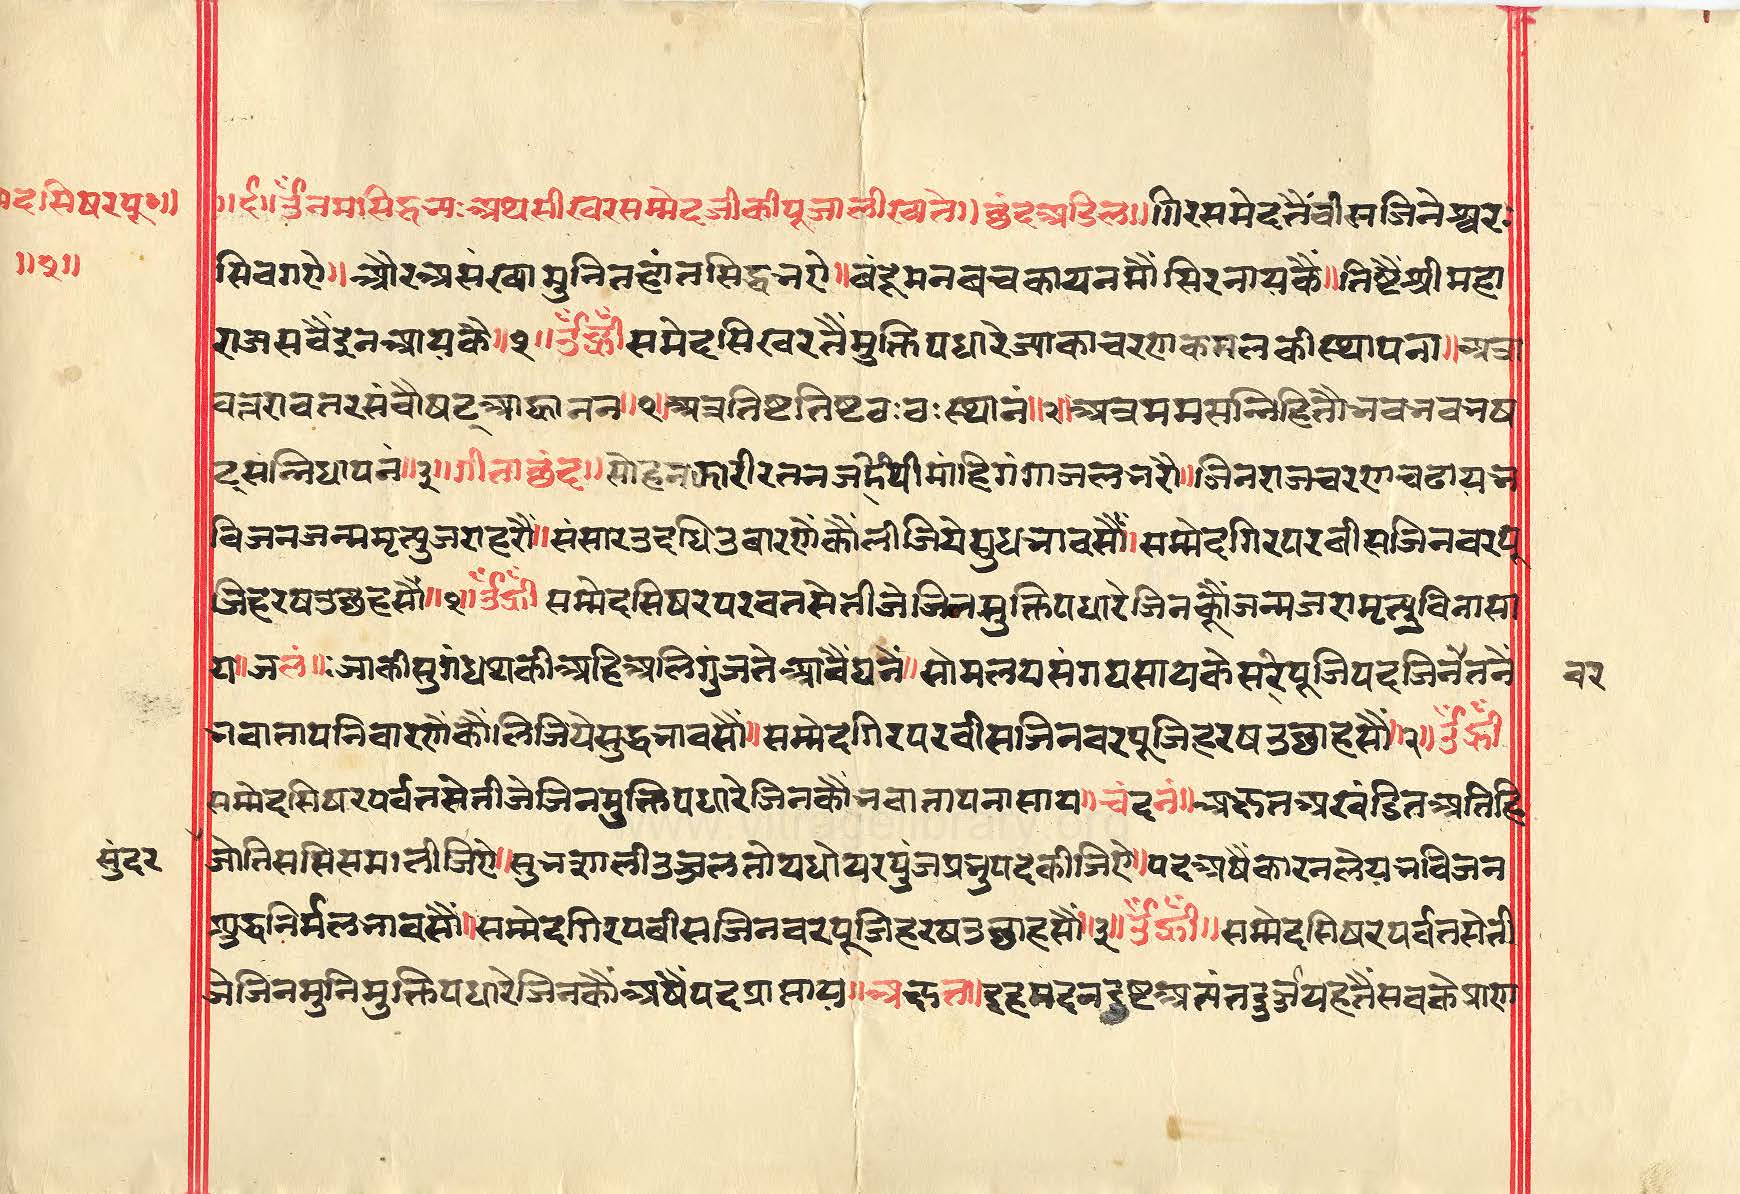 ॥र्द॥ ॐनमःसिद्धभ्यः अथसीखरसम्मेदजीकीपूजालीख्यते॥ छंदअडिल॥ गिरसमेदतैंवीसजिनेश्वर
सिवगए॥ औरअसंख्यामुनितहांतसिद्धभए॥ बंदूमनबचकायनमौंसिरनायकैं॥ तिष्टैश्रीमहा
राजसवैइनआयकै॥१॥ ॐह्रींसमेदसिखरतैंमुक्तिपधारेआकाचरणकमलकीस्थापना॥ अत्रा
वत्तरावतरसंवौषट्आह्वाननं॥१॥ अत्रतिष्टतिष्टठःठःस्थानं॥२॥ अत्रममसन्निहितौभवभवभवष
ट्संन्निधापनं॥३॥ गीताछंद॥ सोहनझारीरतनजडीयीमांहिगंगाजलभरौ॥ जिनराजचरणचढायभ
विजनजन्ममृत्युजराहरौं॥ संसारउदधिउबारणेंकौंलीजियेसुधभावसौं॥ सम्मेदगिरपरवीसजिनवरपू
जिहरषउछाहसौं॥१॥ ॐह्रीं सम्मेदसिषरपरवतसेतीजेजिनमुक्तिपधारेजिनकूंजन्मजरामृत्युविनासा
य॥ जलं॥ जाकीसुगंधथकीअहिअलिगुंजतेआवैंघनें॥ सोमलयसंगघसायकेसरिपूजिपदजिनतनें
भवातापनिवारणेंकौंलिजियेसुद्धभावसौं॥ सम्मेदगिरपरवीसजिनवरपूजिहरषउछाहसौं॥२॥ ॐह्रीं
सम्मेदसिषरपर्वतसेतीजेजिनमुक्तिपधारेजिनकौंभवातापनासाय॥ चंदनं॥ अक्षतअखंडितअतिहि
जोतिससिसमालीजिए॥ सुभसालीउज्जलतोयधोयरपुंजप्रभुपदकीजिऐ॥ पदअषैकारनलेयभविजन
शुद्धनिर्मलभावसौं॥ सम्मेदगिरपवीसजिनवरपूजिहरषउछाहसौं॥३॥ ॐह्रीं॥ सम्मेदसिषरपर्वतसेती
जेजिनमुनिमुक्तिपधारेजिनकौंअषैंपदप्राप्ताय॥ अक्षतं॥ अत्यंतदुर्जयहतैंसबकेप्राण
सिषरपू॰॥
॥१॥
वर
सुंदर